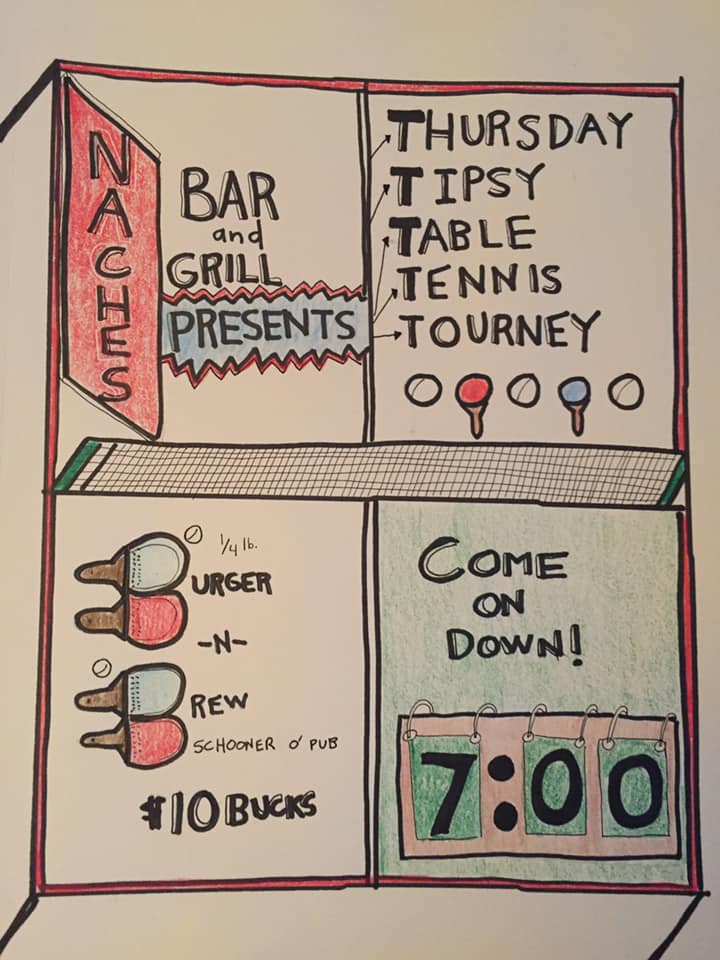 NACHES
BAR
and
GRILL
PRESENTS
THURSDAY
TIPSY
TABLE
TENNIS
TOURNEY
1/4 lb.
BURGER
-N-
BREW
SCHOONER O' PUB
$10 BUCKS
COME
ON
DOWN!
7:00